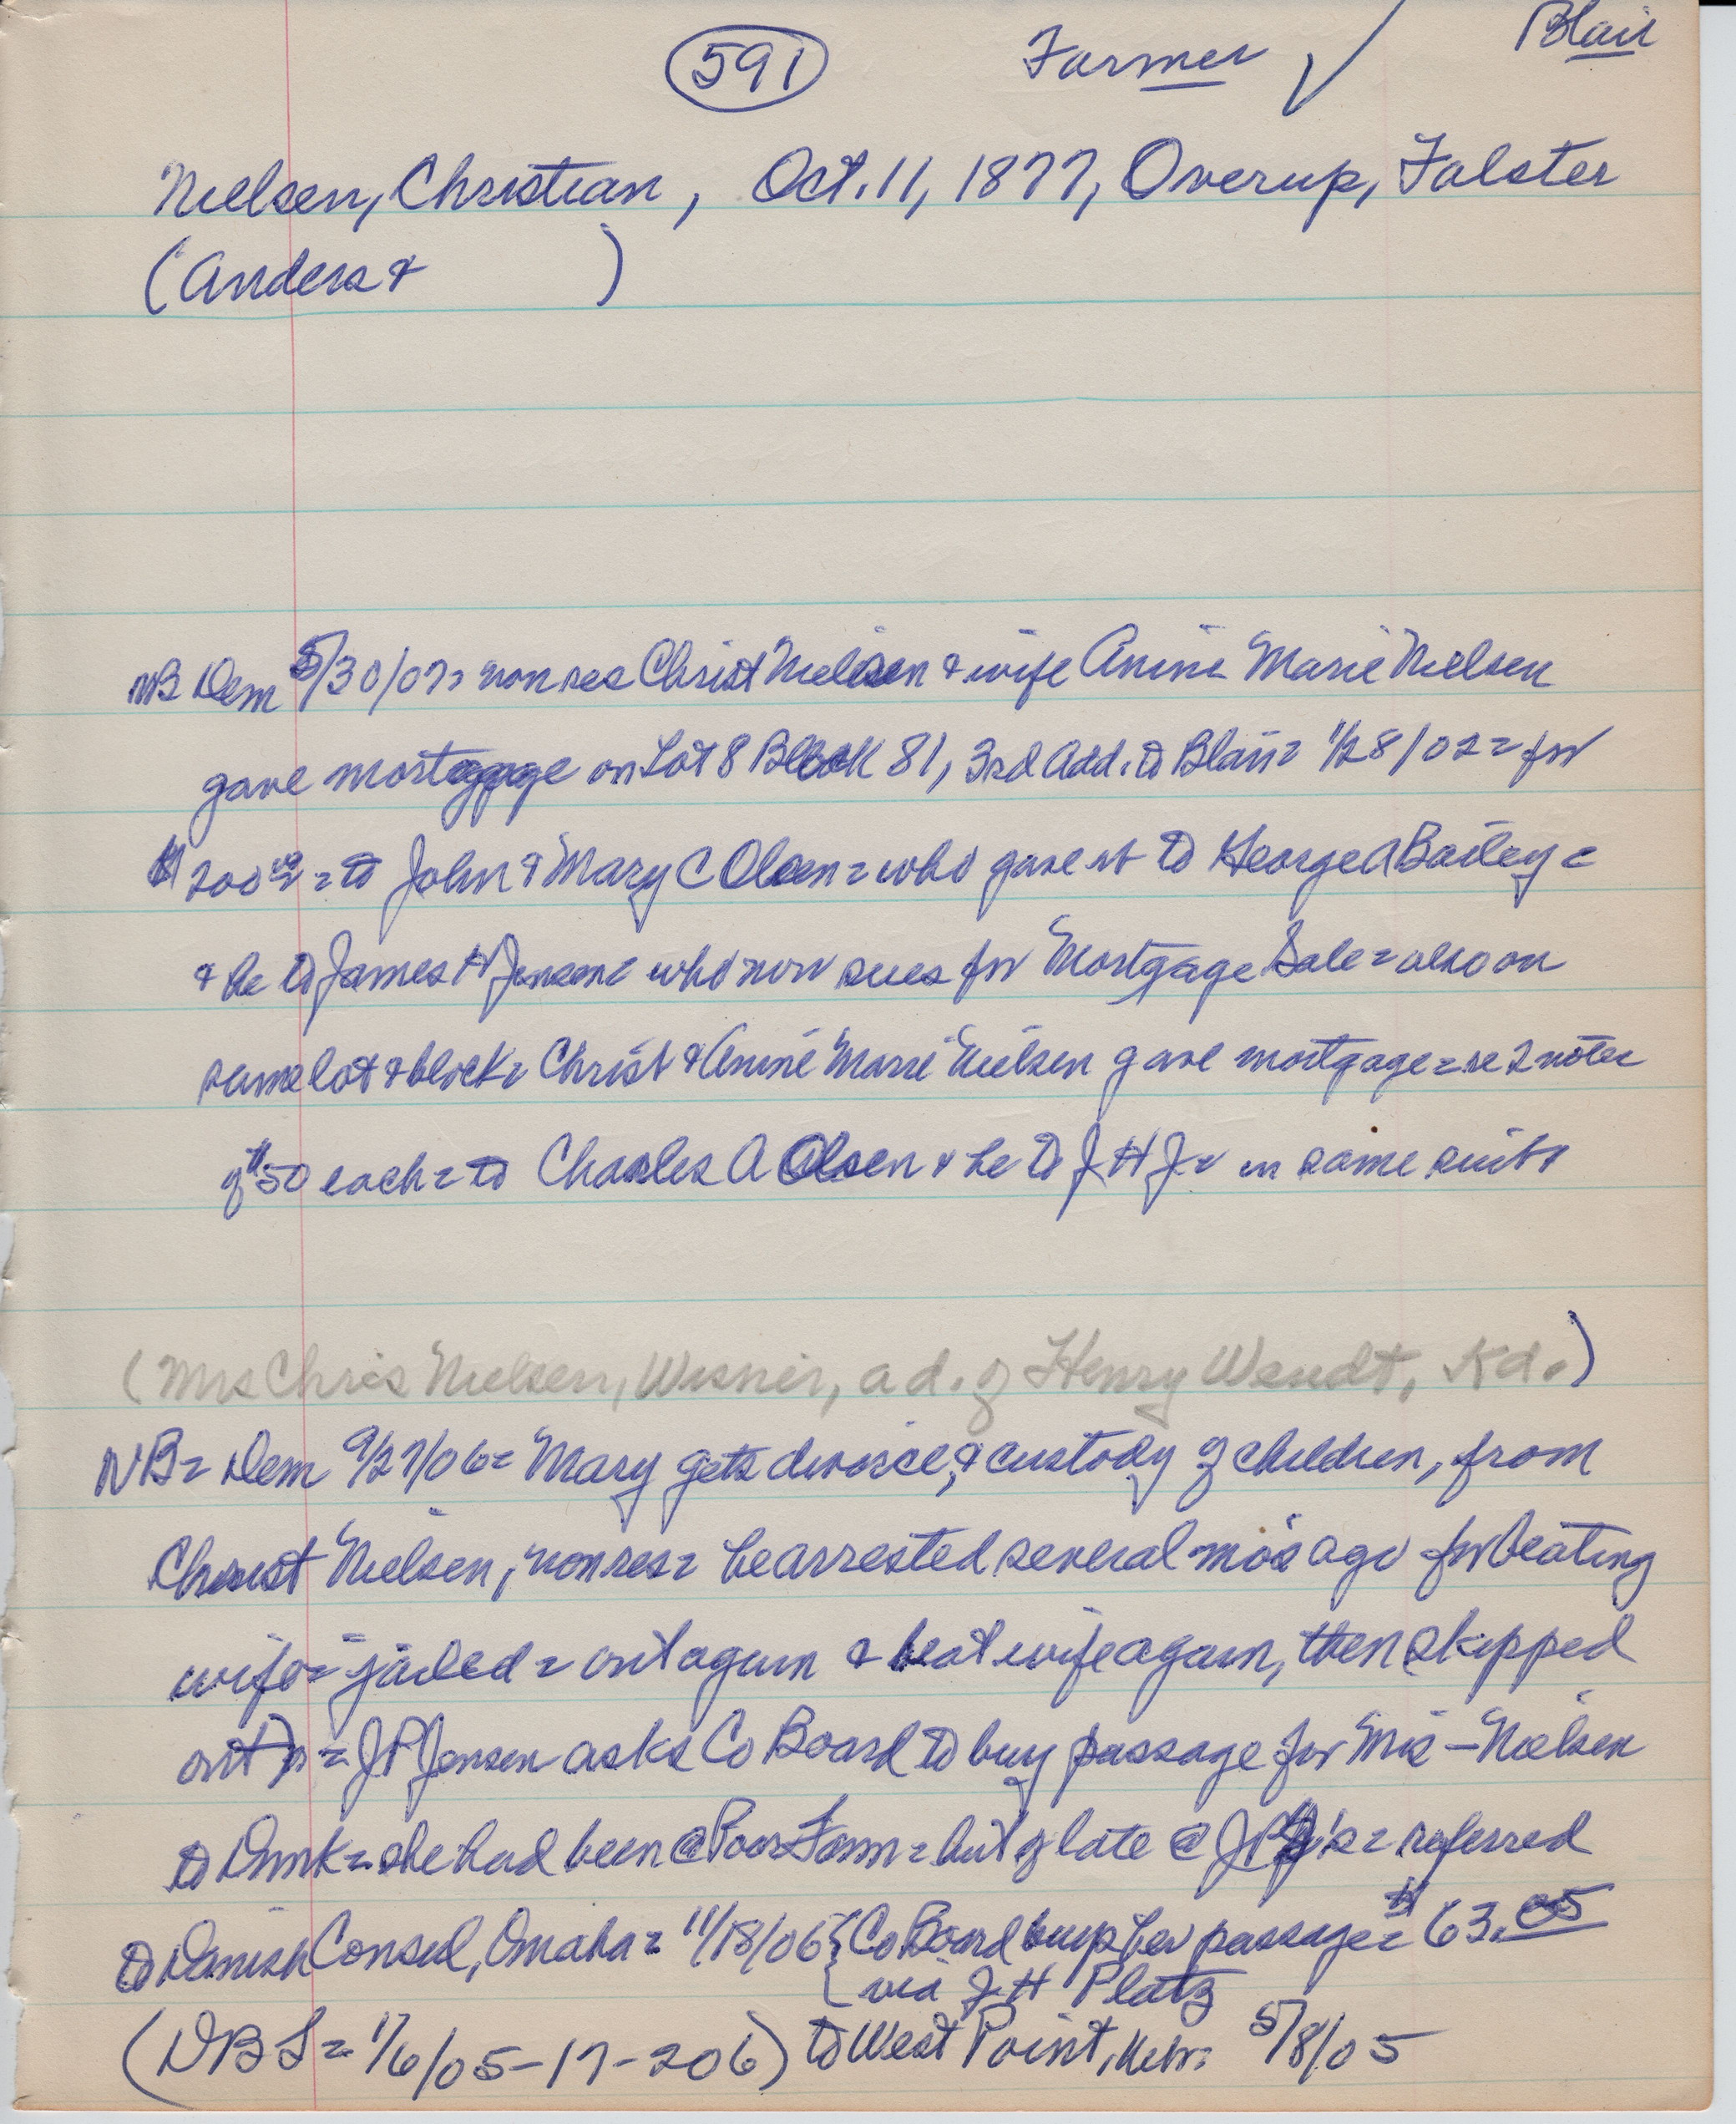 591 Farmer ✓ Blair
Nielsen, Christian, Oct. 11, 1877, Overup, Falster
(Anders & )
NB Dem 5/30/07= non res Christ Nielsen & wife Anine Marie Nielsen
gave mortgage on Lot 8 Block 81, 3rd Add. to Blair= 1/28/02= for
$200.00= to John & Mary C Olsen= who gave it to George A Bailey=
& he to James H Jensen= who now sues for Mortgage Sale= also on
same lot & block= Christ & Anine Marie Nielsen gave mortgage= re 2 notes
of $50 each= to Charles A Olsen & he to J H J= in same suit
(Mrs Chris Nielsen, Wisner, a d. of Henry Wendt, Kd.)
NB= Dem 9/27/06= Mary gets divorce, & custody of children, from
Christ Nielsen, non res= he arrested several mos ago for beating
wife= jailed= out again & beat wife again, then skipped
out)= J P Jensen asks Co Board to buy passage for Mrs – Nielsen
to Dmk= she had been @ Poor Farm= but of late @ JPJ's= referred
to Danish Consul, Omaha= 11/18/06 { Co Board buys her passage= $63.05
{ via J H Platz
(DBS= 1/6/05-17-206) to West Point, Nebr. 5/8/05